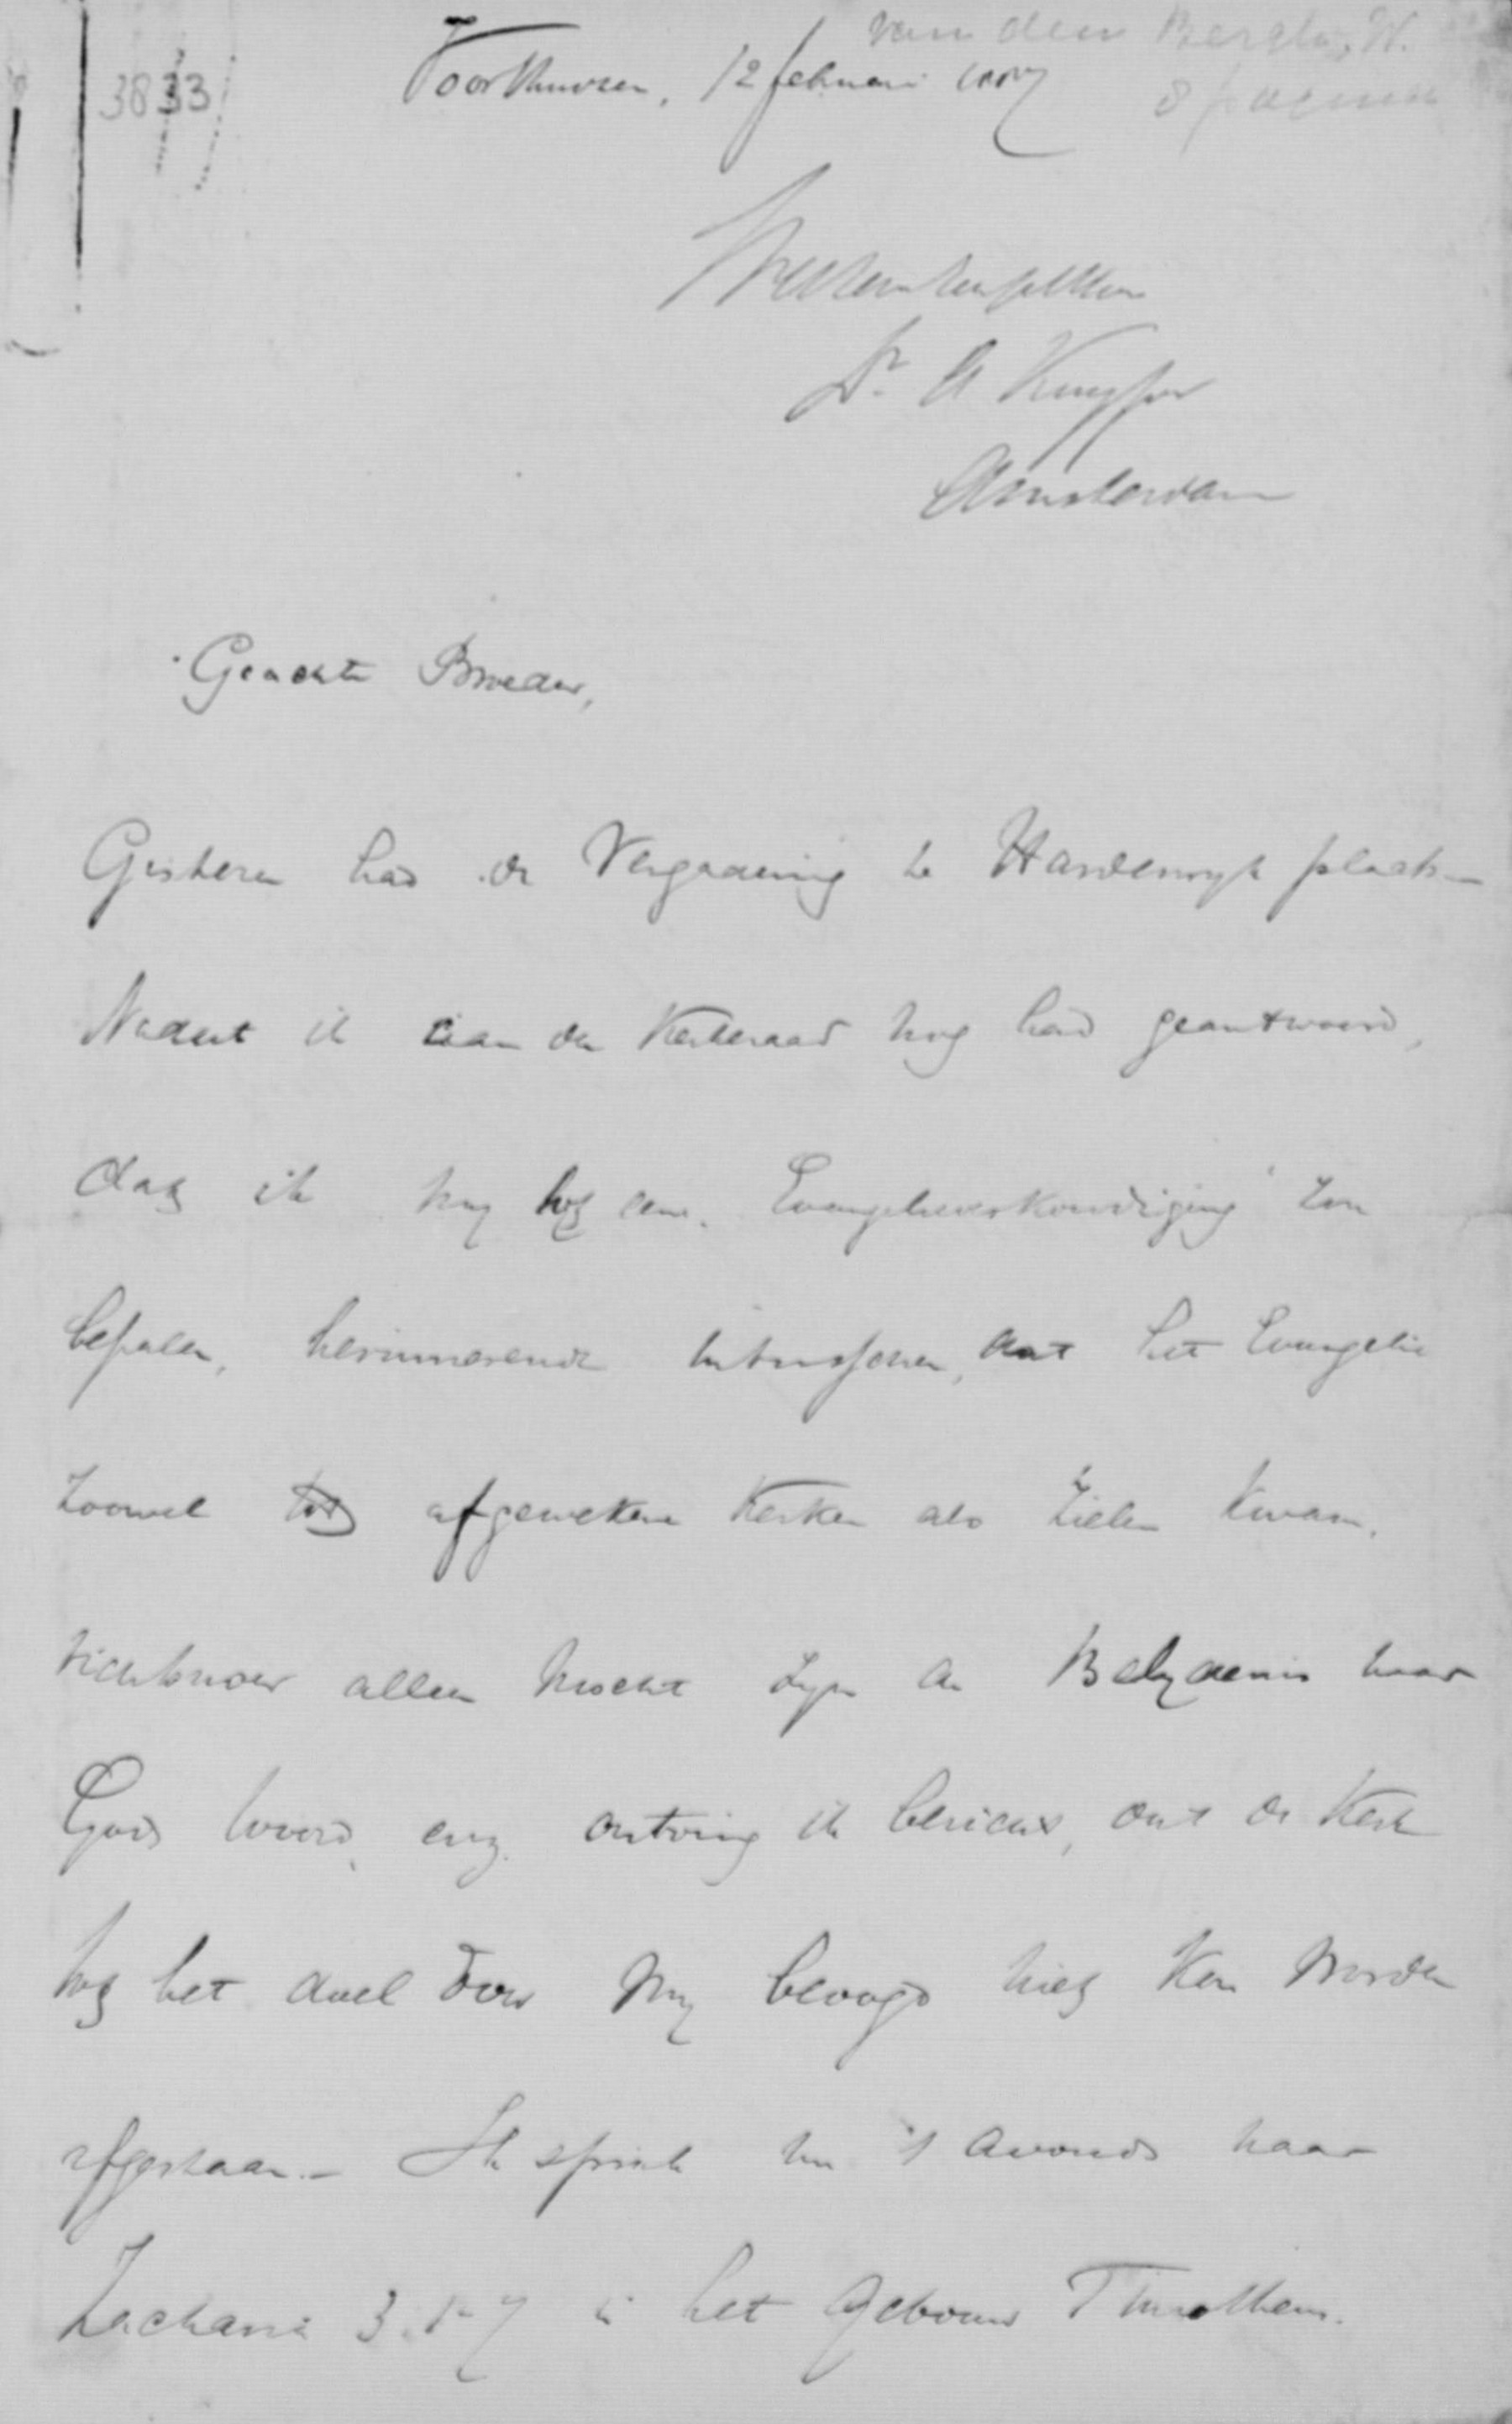 van den Bergh, W.
3833
Voorthuizen, 12 februari 1887
8 pagina's
Dr. A Kuyper
Amsterdam
Geachte Broeder,
Gisteren had de Vergadering te Harderwyk plaats –
Nadat ik aan den Kerkeraad nog had geantwoord,
dat ik my tot eene Evangelieverkondiging zou
bepalen, herinnerende intusschen, dat het Evangelie
zoowel tot afgewekene Kerken als Zielen kwam,
richtsnoer alleen mocht zyn de Belydenis naar
Gods woord, enz. ontving ik bericht, dat de Kerk
tot het doel door my beoogd niet kon worden
afgestaan. – Ik sprak toen 's avonds naar
Zacharia 3:1-7 in het Gebouw Timotheus.